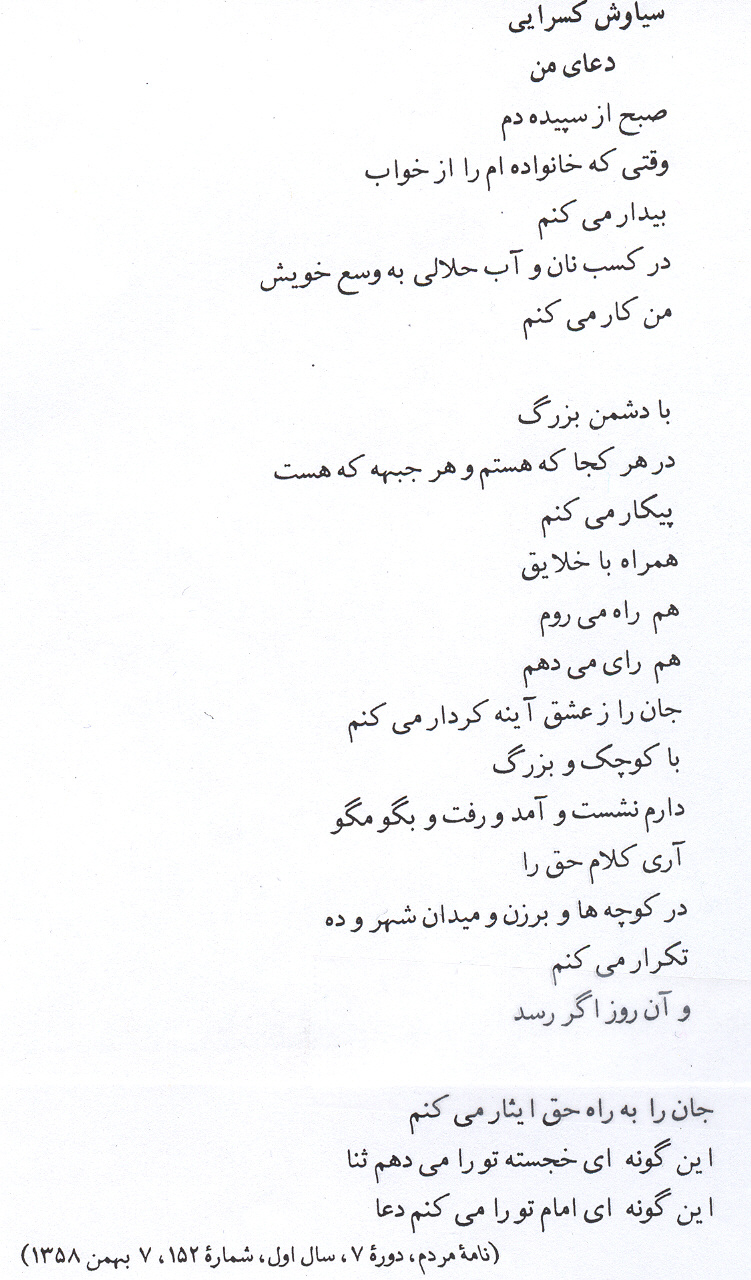 سیاوش کسرایی
دعای من
صبح از سپیده دم
وقتی که خانواده ام را از خواب
بیدار می کنم
در کسب نان و آب حلالی به وسع خویش
من کار می کنم
با دشمن بزرگ
در هر کجا که هستم و هر جبهه که هست
پیکار می کنم
همراه با خلایق
هم راه می روم
هم رای می دهم
جان را ز عشق آینه کردار می کنم
با کوچک و بزرگ
دارم نشست و آمد و رفت و بگو مگو
آری کلام حق را
در کوچه ها و برزن و میدان شهر و ده
تکرار می کنم
و آن روز اگر رسد
جان را به راه حق ایثار می کنم
این گونه ای خجسته تو را می دهم ثنا
این گونه ای امام تو را می کنم دعا
(نامهٔ مردم، دورهٔ ۷، سال اول، شمارهٔ ۱۵۲، ۷ بهمن ۱۳۵۸)